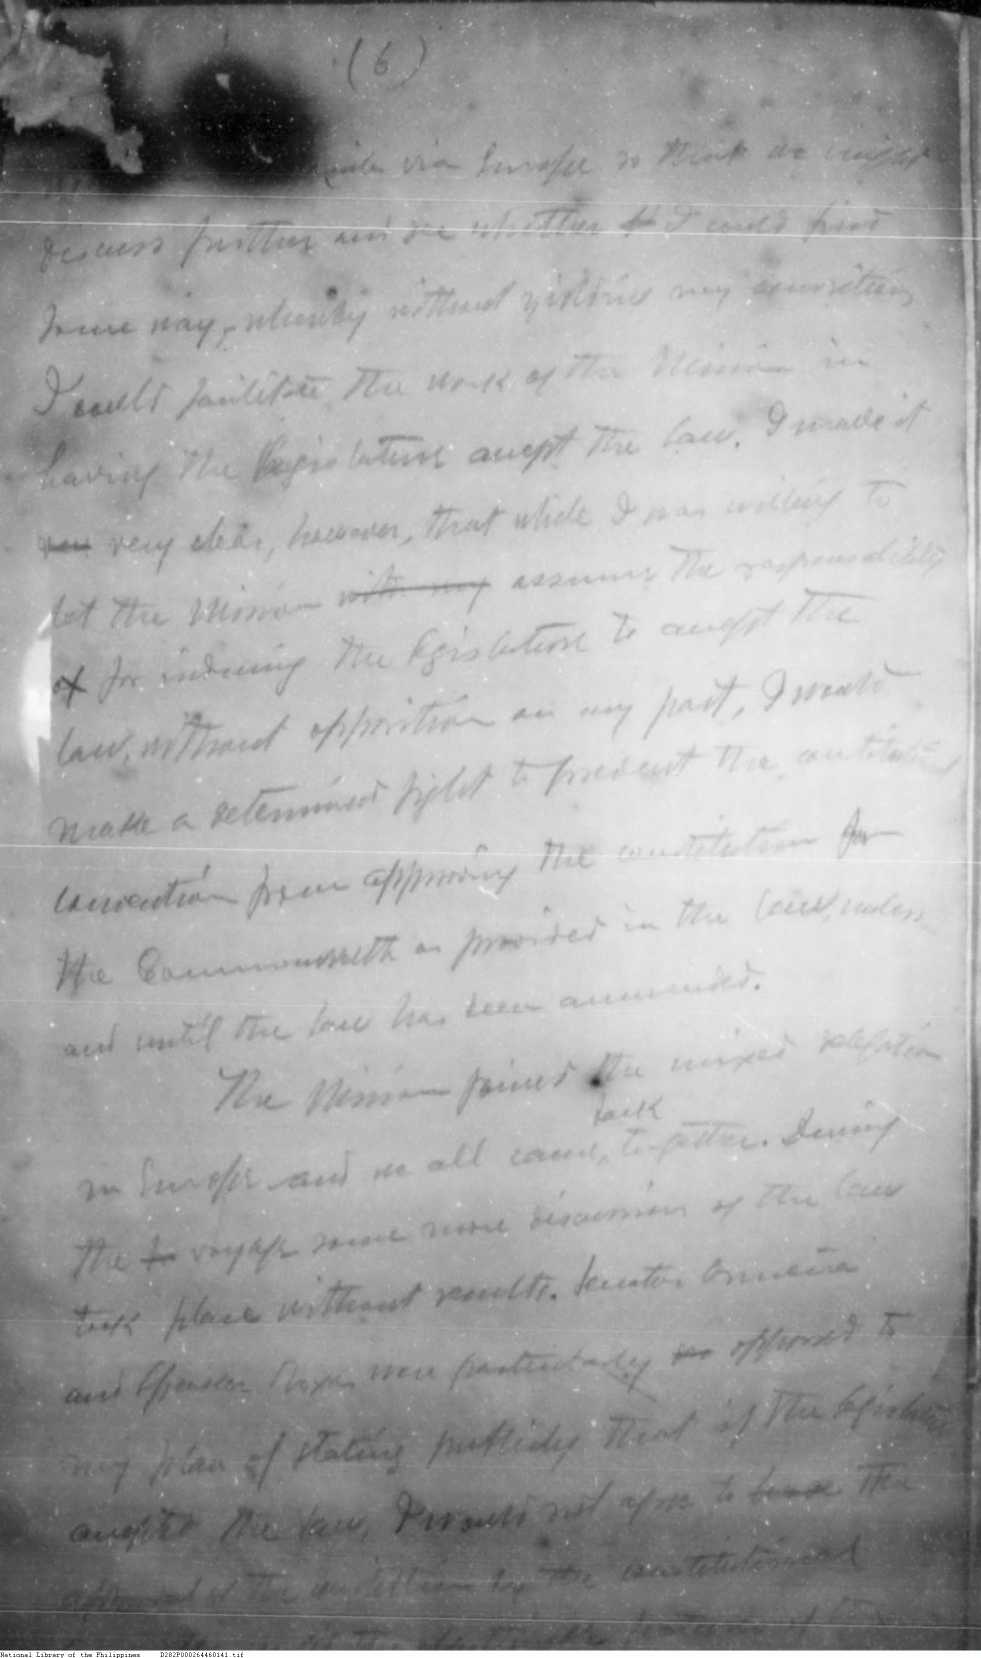 (6)
via Europe so that we might
discuss further and see whether I could find
some way, whereby without yielding my convictions
I could facilitate the work of the Mission in
having the Legislature accept the law. I made it
very clear, however, that while I was willing to
let the Mission with my assume the responsibility
of for inducing the legislature to accept the
law, without opposition on my part, I would
make a determined fight to prevent the constitutional
convention from approving the constitution for
the Commonwealth as provided in the law, unless
and until the law has been ammended.
The Mission joined the mixed delegation
in Europe and we all came back together. During
the voyage some more discussion of the law
took place without results. Senator Osmeña
and Speaker Roxas were particularly opposed to
my plan of stating publicly that if the legislature
accepted the law, I would not agree to the
approval of the constitution by the constitutional